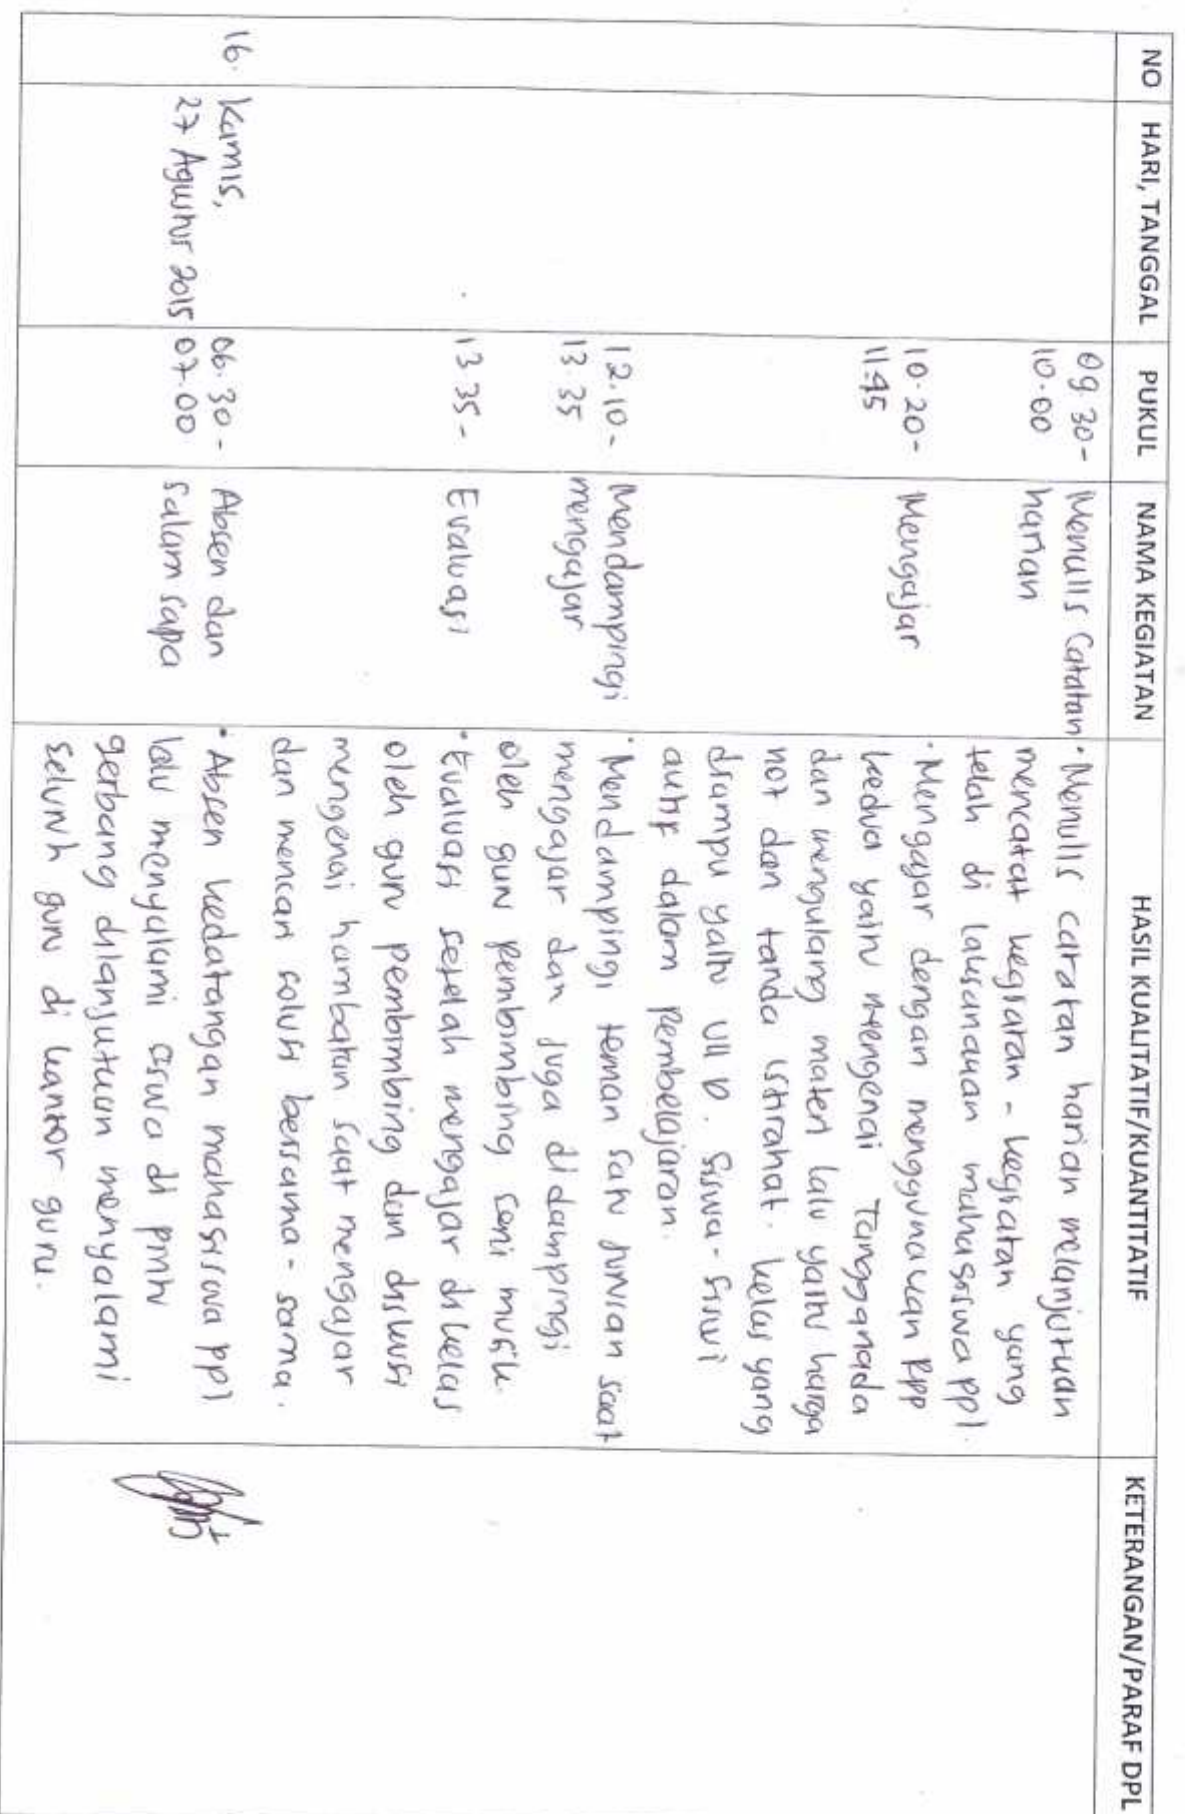 NO HARI, TANGGAL PUKUL NAMA KEGIATAN HASIL KUALITATIF/KUANTITATIF KETERANGAN/PARAF DPL
09.30 - Menulis Catatan • Menulis catatan harian melanjutkan
10.00 harian mencatat kegiatan - kegiatan yang
telah di laksanakan mahasiswa ppl.
10.20 - Mengajar • Mengajar dengan menggunakan RPP
11.45 kedua yaitu mengenai Tangganada
dan mengulang materi lalu yaitu harga
not dan tanda istirahat. kelas yang
diampu yaitu VII D. siswa - siswi
aktif dalam pembelajaran.
12.10 - Mendampingi • Mendampingi teman satu jurusan saat
13 35 mengajar mengajar dan juga didampingi
oleh guru pembimbing seni musik.
13 35 - Evaluasi • Evaluasi setelah mengajar di kelas
oleh guru pembimbing dan diskusi
mengenai hambatan saat mengajar
dan mencari solusi bersama - sama.
16. Kamis, 06.30 - Absen dan • Absen kedatangan mahasiswa ppl
27 Agustus 2015 07.00 salam sapa lalu menyalami siswa di pintu
gerbang dilanjutkan menyalami
seluruh guru di kantor guru.